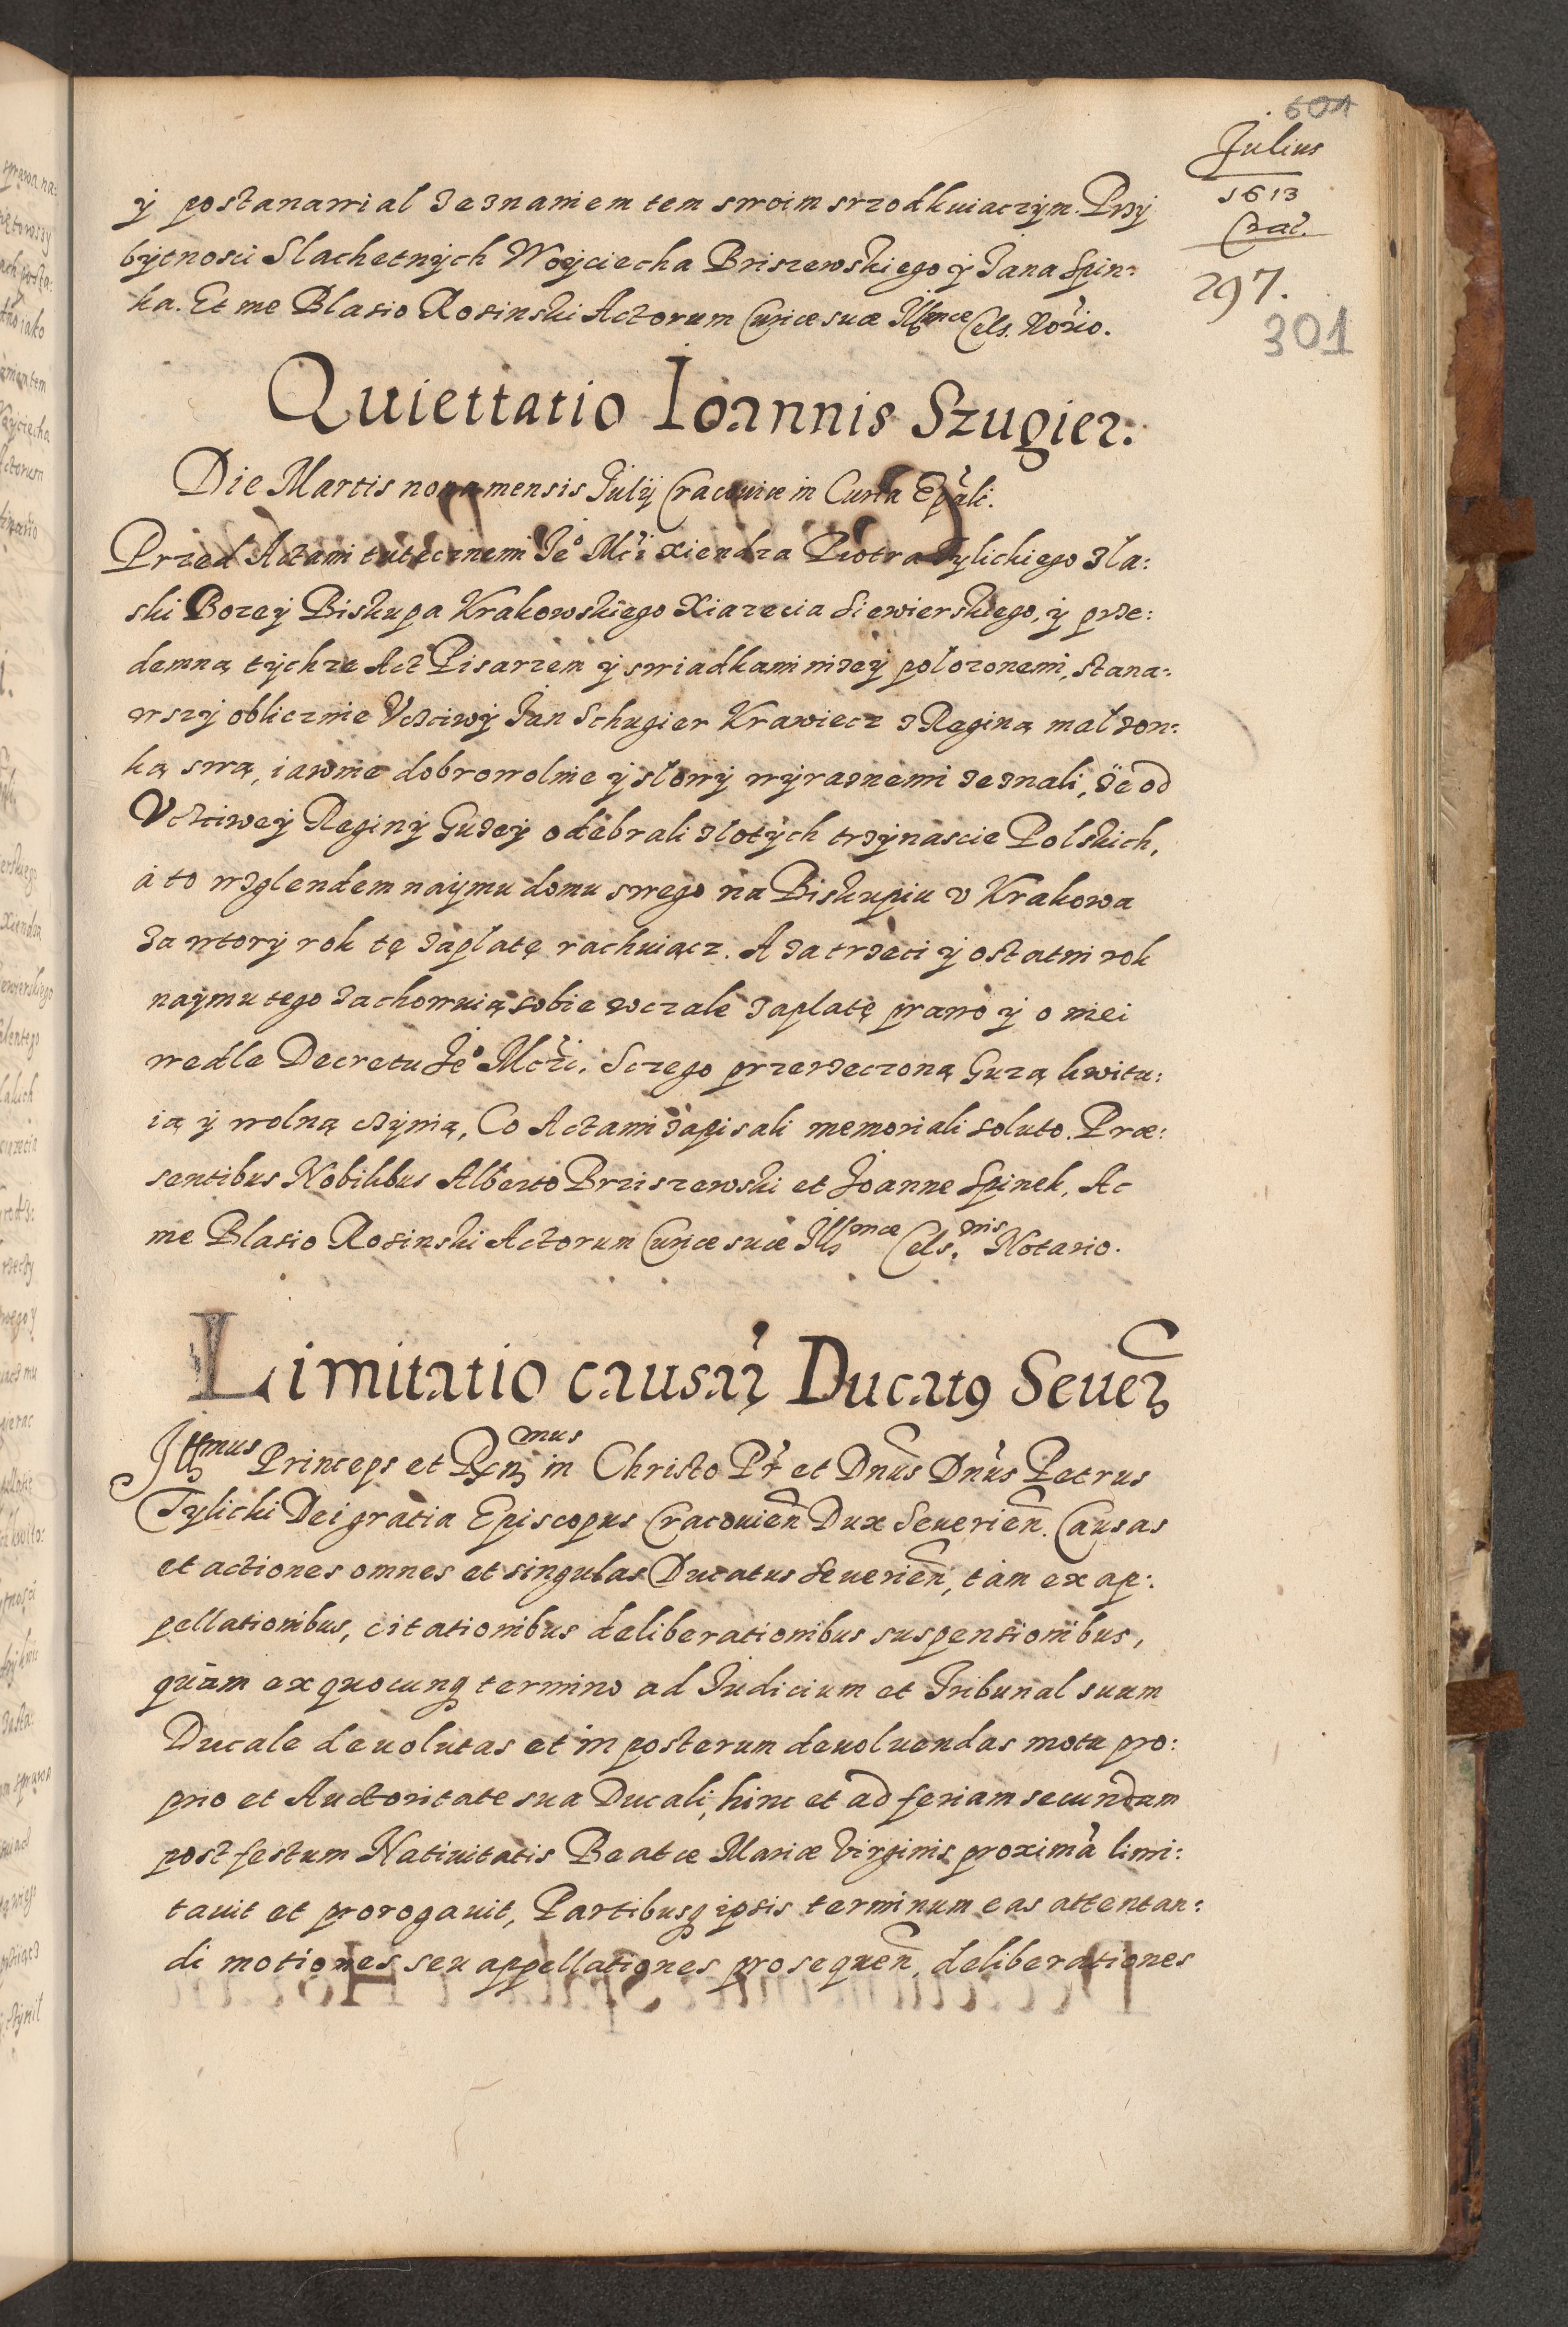 601
Julius
1613
Crac.
297.
301
ÿ postanawial zeznaniem tem swoim srzodkuiaczÿm. Przÿ
bÿtnosci Slachetnÿch Woÿciecha Briszewskiego ÿ Jana Spin:
ka. Et me Blasio Rosinski Actorum Curiæ suæ Illmæ Cels. Norio.
Quiettatio Ioannis Szugier.
Die Martis nona mensis Julÿ Cracouiæ in Curia Epali.
Przed Actami tutecznemi Je° Mci Xiendza Piotra Tylickiego z la:
ski Bozeÿ Biskupa Krakowskiego Xiazecia Siewierskiego, ÿ prze:
demną tÿchze Act Pisarzem ÿ swiadkami nizeÿ polozonemi, stana:
wszÿ oblicznie Vcżciwÿ Jan Schugier Krawiecz z Reginą malzon:
ką swą, iawnie dobrowolnie ÿ slowÿ wÿraznemi zeznali, że od
Vcżciweÿ Reginÿ Guzeÿ odebrali zlotÿch trzÿnascie Polskich,
a to wzglendem naÿmu domu swego na Biskupiu v Krakowa
za wtorÿ rok tę zaplatę rachuiącz. A za trzeci ÿ ostatni rok
naÿmu tego zachowuią sobie wczale zaplatę prawo ÿ o niei
wedle Decretu Je° Mci. Sczego przerzeczoną Guzą kwitu:
ią ÿ wolną czÿnią, Co Actami zapisali memoriali soluto. Præ:
sentibus Nobilibus Alberto Brziszewski et Joanne Spinek, Ac
me Blasio Rosinski Actorum Curiæ suæ Illmæ Cels.nis Notario.
Limitatio causaꝝ Ducatꝯ Seueꝝ
Illmus Princeps et Rxnmus in Christo Pr et Dnus Dnus Petrus
Tylicki Dei gratia Episcopus Cracouien Dux Seuerien. Causas
et actiones omnes et singulas Ducatus Seuerien, tam ex ap:
pellationibus, citationibus deliberationibus suspensionibus,
quam ex quocunꝗ termino ad Judicium et Tribunal suum
Ducale deuolutas et in posterum deuoluendas motu pro:
prio et Auctoritate sua Ducali, hinc et ad feriam secundam
post festum Natiuitatis Beatæ Mariæ Virginis proxima limi:
tauit et prorogauit, Partibusꝗ ipsis terminum eas attentan:
di motiones seu appellationes prosequen, deliberationes